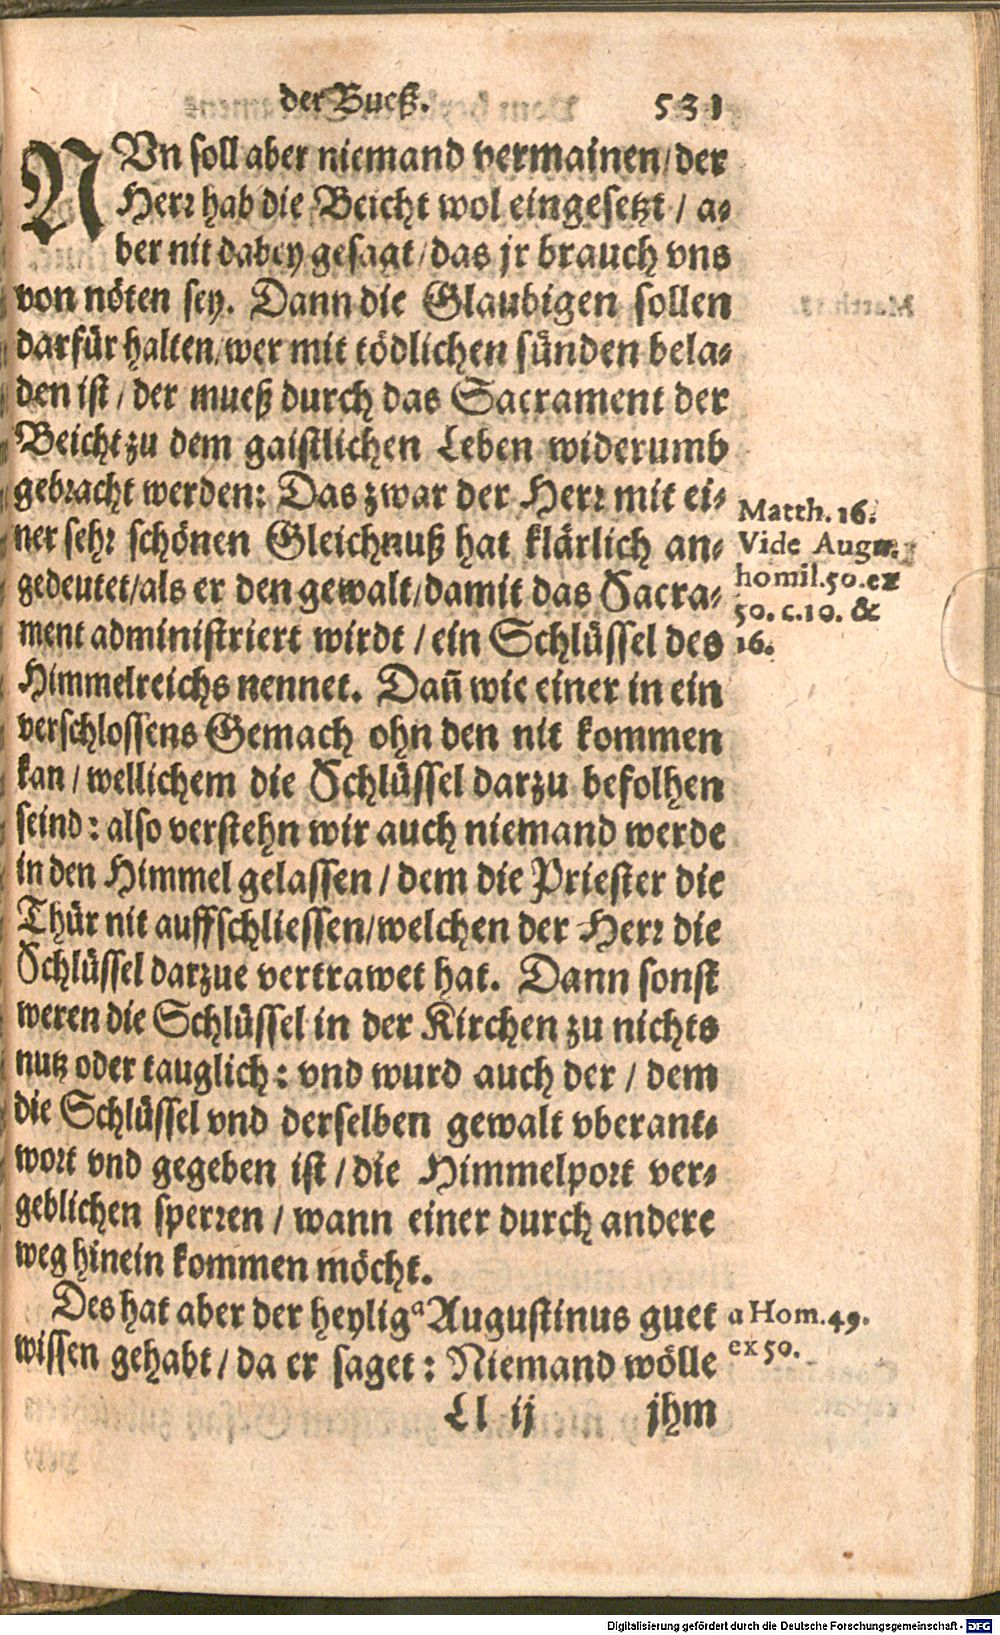 der Bueß. 531
NVn soll aber niemand vermainen/der
Herr hab die Beicht wol eingesetzt / a-
ber nit dabey gesagt/das jr brauch vns
von nöten sey. Dann die Glaubigen sollen
darfür halten/wer mit tödlichen sünden bela-
den ist / der mueß durch das Sacrament der
Beicht zu dem gaistlichen Leben widerumb
gebracht werden: Das zwar der Herr mit ei-
ner sehr schönen Gleichnuß hat klärlich an-
gedeutet/als er den gewalt/damit das Sacra-
ment administriert wirdt / ein Schlüssel des
Himmelreichs nennet. Dañ wie einer in ein
verschlossens Gemach ohn den nit kommen
kan / wellichem die Schlüssel darzu befolhen
seind: also verstehn wir auch niemand werde
in den Himmel gelassen / dem die Priester die
Thür nit auffschliessen/welchen der Herr die
Schlüssel darzue vertrawet hat. Dann sonst
weren die Schlüssel in der Kirchen zu nichts
nutz oder tauglich: vnd wurd auch der / dem
die Schlüssel vnd derselben gewalt vberant-
wort vnd gegeben ist / die Himmelport ver-
geblichen sperren / wann einer durch andere
weg hinein kommen möcht.
Matth. 16.
Vide Augu.
homil.50.ex
50. c.10. &
16.
Des hat aber der heylig ᵃ Augustinus guet
wissen gehabt / da er saget: Niemand wölle
a Hom.49.
ex 50.
Ll ij jhm
Digitalisierung gefördert durch die Deutsche Forschungsgemeinschaft - DFG